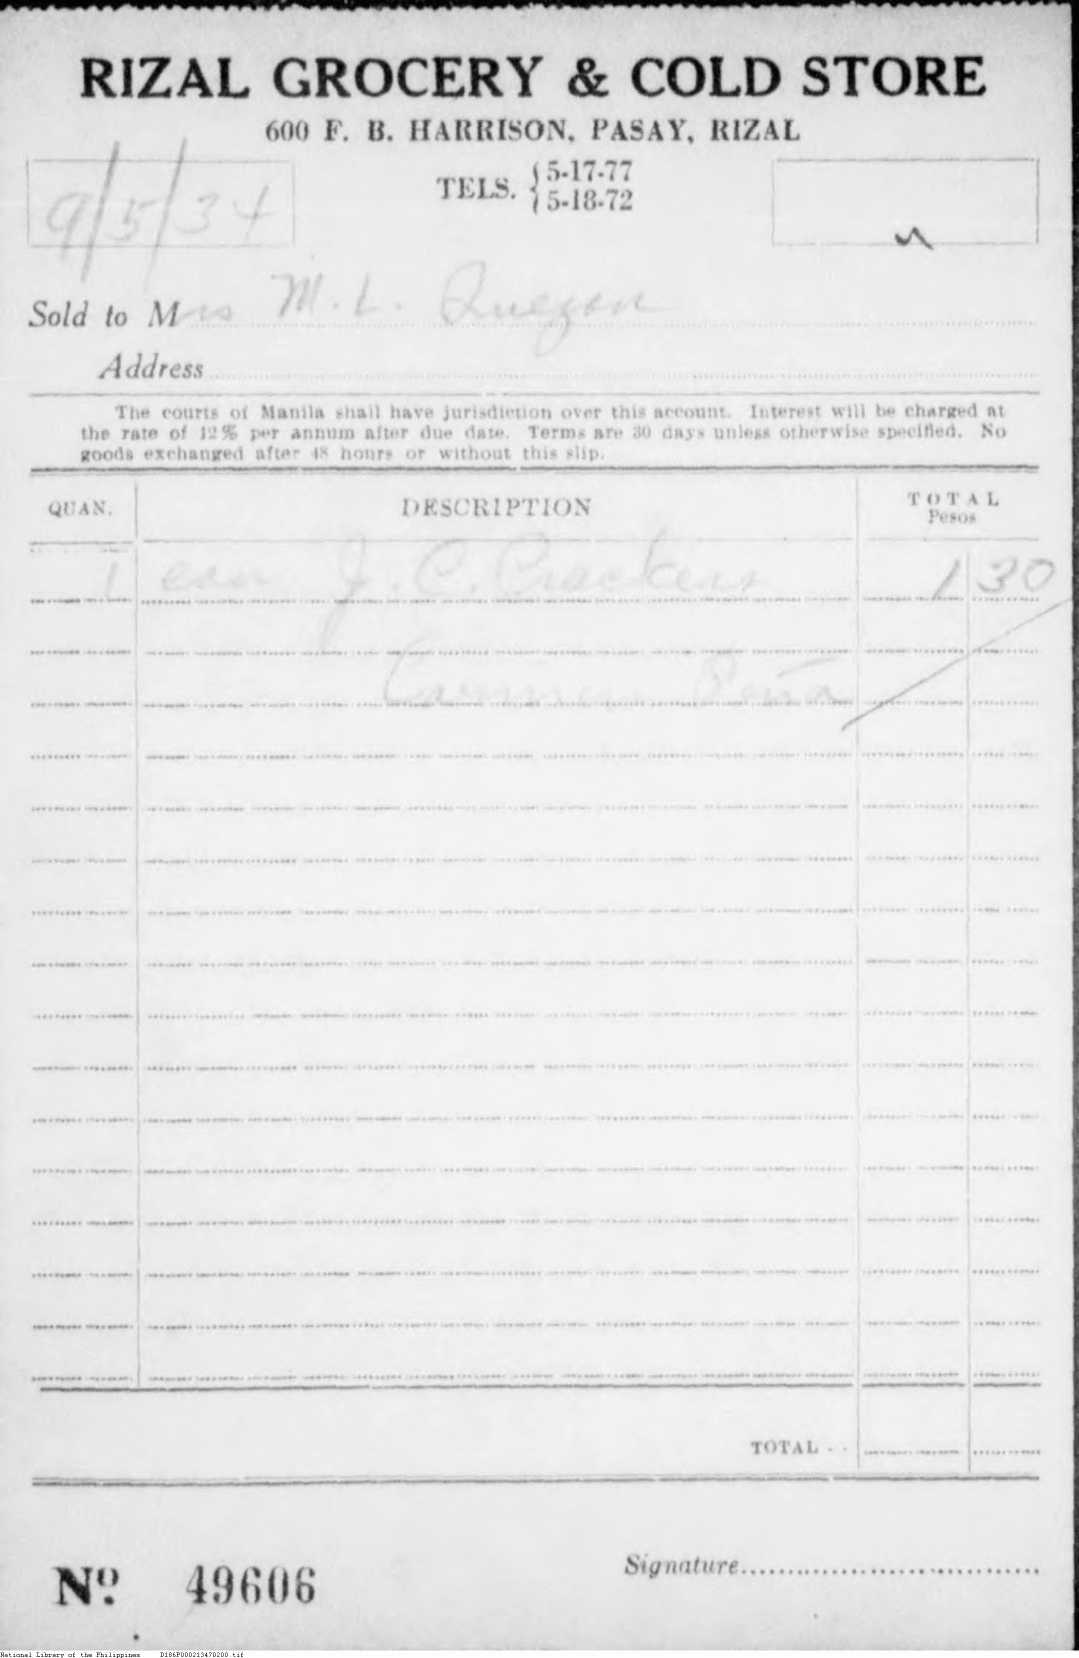 RIZAL GROCERY & COLD STORE
600 F. B. HARRISON, PASAY, RIZAL
TELS. { 5-17-77
5-18-72
9/5/34
Sold to Mrs M. L. Quezon
Address
The courts of Manila shall have jurisdiction over this account. Interest will be charged at
the rate of 12% per annum after due date. Terms are 30 days unless otherwise specified. No
goods exchanged after 48 hours or without this slip.
QUAN. DESCRIPTION TOTAL
Pesos
1 can J. C. Crackers 1 30
Carmen Peña
TOTAL - -
Signature
No. 49606
National Library of the Philippines D186P000213470200.tif